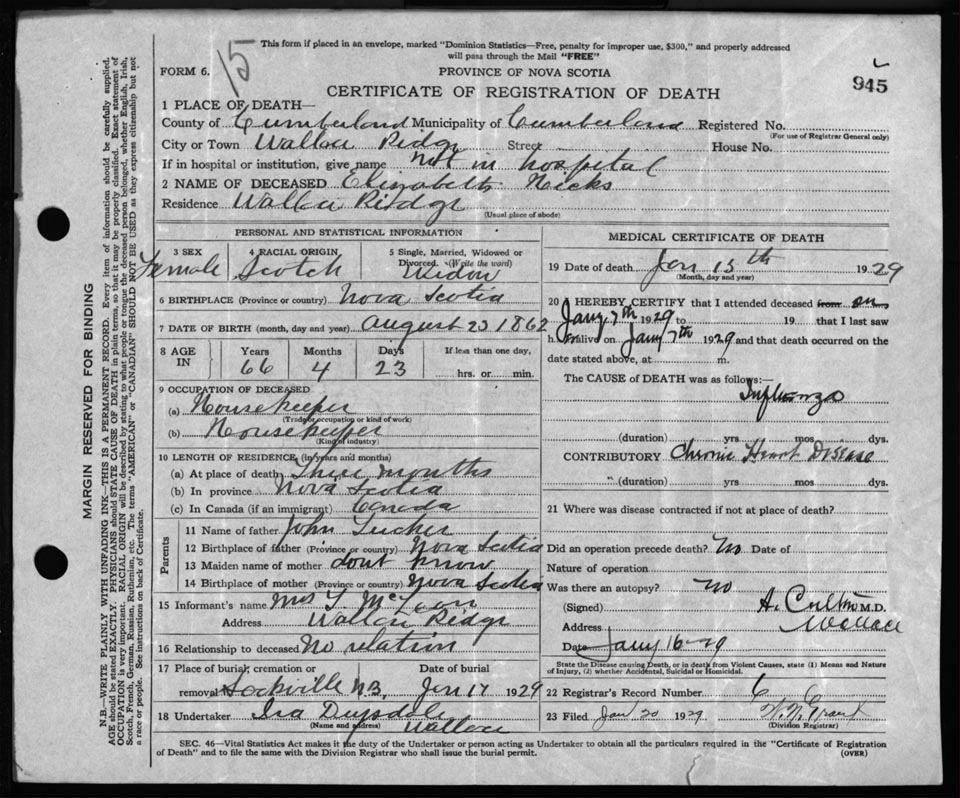 This form if placed in an envelope, marked "Dominion Statistics—Free, penalty for improper use, $300," and properly addressed
will pass through the Mail "FREE"
15
FORM 6.
PROVINCE OF NOVA SCOTIA
945
CERTIFICATE OF REGISTRATION OF DEATH
1 PLACE OF DEATH—
County of Cumberland Municipality of Cumberland Registered No.
(For use of Registrar General only)
City or Town Wallace Ridge Street House No.
If in hospital or institution, give name not in hospital
2 NAME OF DECEASED Elizabeth Hicks
Residence Wallace Ridge
(Usual place of abode)
PERSONAL AND STATISTICAL INFORMATION
3 SEX Female
4 RACIAL ORIGIN Scotch
5 Single, Married, Widowed or Divorced. (Write the word) Widow
6 BIRTHPLACE (Province or country) Nova Scotia
7 DATE OF BIRTH (month, day and year) August 23 1862
8 AGE IN Years 66 Months 4 Days 23 If less than one day, hrs. or min.
9 OCCUPATION OF DECEASED
(a) Housekeeper
(Trade occupation or kind of work)
(b) Housekeeper
(Kind of industry)
10 LENGTH OF RESIDENCE (in years and months)
(a) At place of death Three months
(b) In province Nova Scotia
(c) In Canada (if an immigrant) Canada
Parents
11 Name of father John Tucker
12 Birthplace of father (Province or country) Nova Scotia
13 Maiden name of mother dont know
14 Birthplace of mother (Province or country) Nova Scotia
15 Informant's name Mrs
Address Wallace Ridge
16 Relationship to deceased No relation
17 Place of burial, cremation or removal Sackville N.B. Date of burial Jan 17 1929
18 Undertaker Ira Drysdale
(Name and address) Wallace
MEDICAL CERTIFICATE OF DEATH
19 Date of death Jan 15th 1929
(Month, day and year)
20 I HEREBY CERTIFY that I attended deceased from on
Jany 7th 1929 to 19 that I last saw
h alive on Jany 7th 1929 and that death occurred on the
date stated above, at m.
The CAUSE of DEATH was as follows:—
Influenza
(duration) yrs mos dys.
CONTRIBUTORY Chronic Heart Disease
" (duration) yrs mos dys.
21 Where was disease contracted if not at place of death?
Did an operation precede death? No Date of
Nature of operation
Was there an autopsy? no
(Signed) M.D.
Address Wallace
Date Jany 16-29
State the Disease causing Death, or in death from Violent Causes, state (1) Means and Nature
of Injury, (2) whether Accidental, Suicidal or Homicidal.
22 Registrar's Record Number 6
23 Filed Jan 20 1929
(Division Registrar)
SEC. 46—Vital Statistics Act makes it the duty of the Undertaker or person acting as Undertaker to obtain all the particulars required in the "Certificate of Registration
of Death" and to file the same with the Division Registrar who shall issue the burial permit.
(OVER)
MARGIN RESERVED FOR BINDING
N.B.—WRITE PLAINLY WITH UNFADING INK—THIS IS A PERMANENT RECORD. Every item of information should be carefully supplied.
AGE should be stated EXACTLY. PHYSICIANS should STATE CAUSE OF DEATH in plain terms, so that it may be properly classified. Exact statement of
OCCUPATION is very important. RACIAL ORIGIN will be described by stating to what people or tongue the deceased person belonged, whether English, Irish,
Scotch, French, German, Russian, Ruthenian, etc. The terms "AMERICAN" or "CANADIAN" SHOULD NOT BE USED as they express citizenship but not
a race or people. See instructions on back of Certificate.